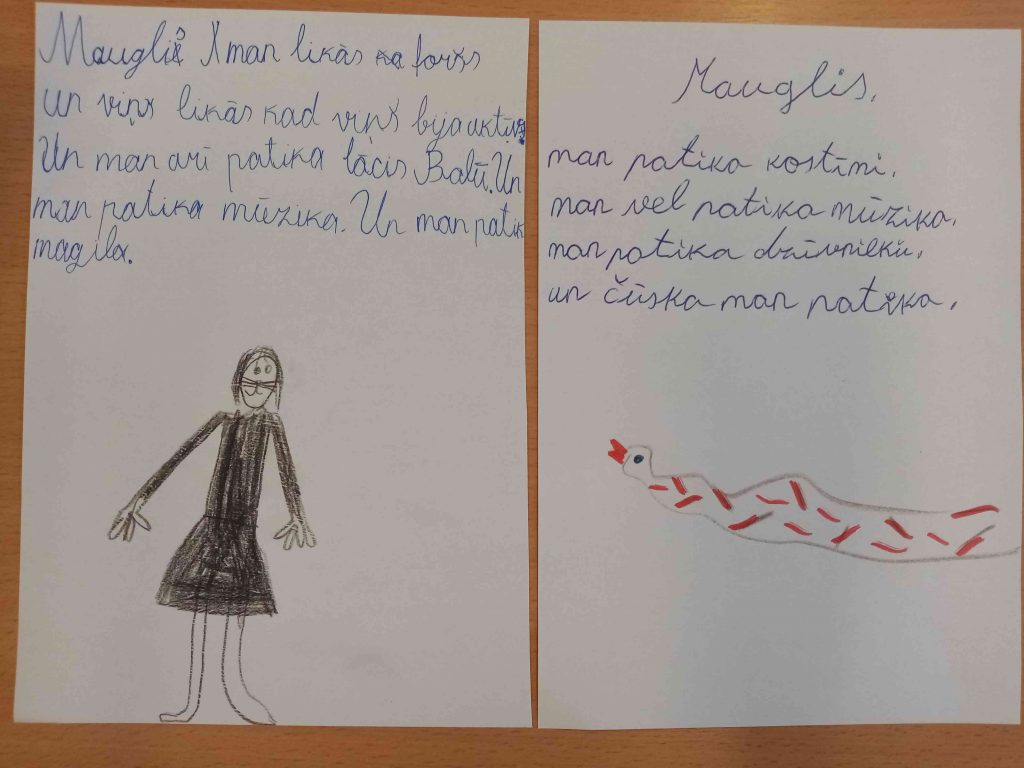 Mauglis man likās foršs
un viņš likās kad viņš bija aktīvs.
Un man arī patika lācis Balū. Un
man patika mūzika. Un man patik
magila.
Mauglis.
man patika kostīmi.
man vel patika mūzika.
man patika dzīvnieki.
un čūska man patika.